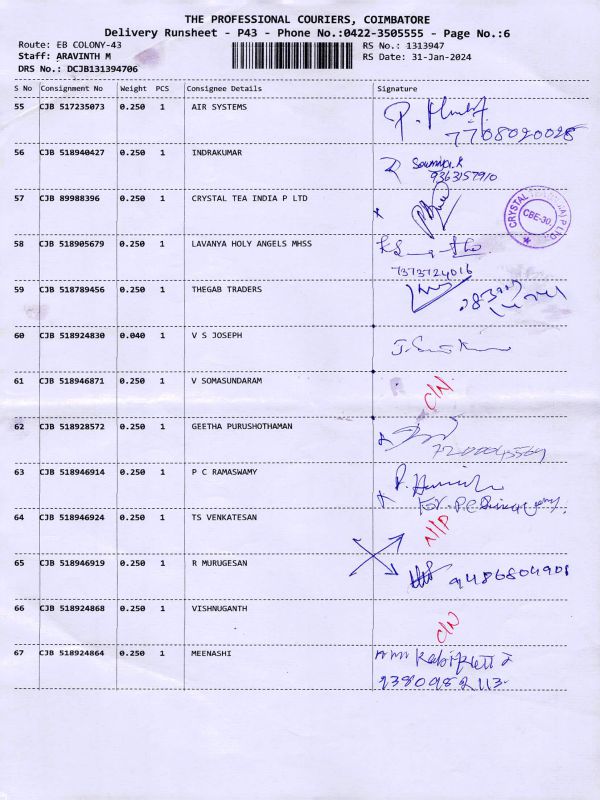 THE PROFESSIONAL COURIERS, COIMBATORE
Delivery Runsheet - P43 - Phone No.:0422-3505555 - Page No.:6
Route: EB COLONY-43
Staff: ARAVINTH M
DRS No.: DCJB131394706
RS No.: 1313947
RS Date: 31-Jan-2024
S No Consignment No Weight PCS Consignee Details Signature
55 CJB 517235073 0.250 1 AIR SYSTEMS
7708020028
56 CJB 518940427 0.250 1 INDRAKUMAR
Sowmiya.R
9363157910
57 CJB 89988396 0.250 1 CRYSTAL TEA INDIA P LTD
CRYSTAL P LTD
CBE-30.
58 CJB 518905679 0.250 1 LAVANYA HOLY ANGELS MHSS
7373724016
59 CJB 518789456 0.250 1 THEGAB TRADERS
60 CJB 518924830 0.040 1 V S JOSEPH
61 CJB 518946871 0.250 1 V SOMASUNDARAM
C/N
62 CJB 518928572 0.250 1 GEETHA PURUSHOTHAMAN
7200045569
63 CJB 518946914 0.250 1 P C RAMASWAMY
For. P.C
64 CJB 518946924 0.250 1 TS VENKATESAN
N/P
65 CJB 518946919 0.250 1 R MURUGESAN
9486804901
66 CJB 518924868 0.250 1 VISHNUGANTH
C/N
67 CJB 518924864 0.250 1 MEENASHI
9380982113